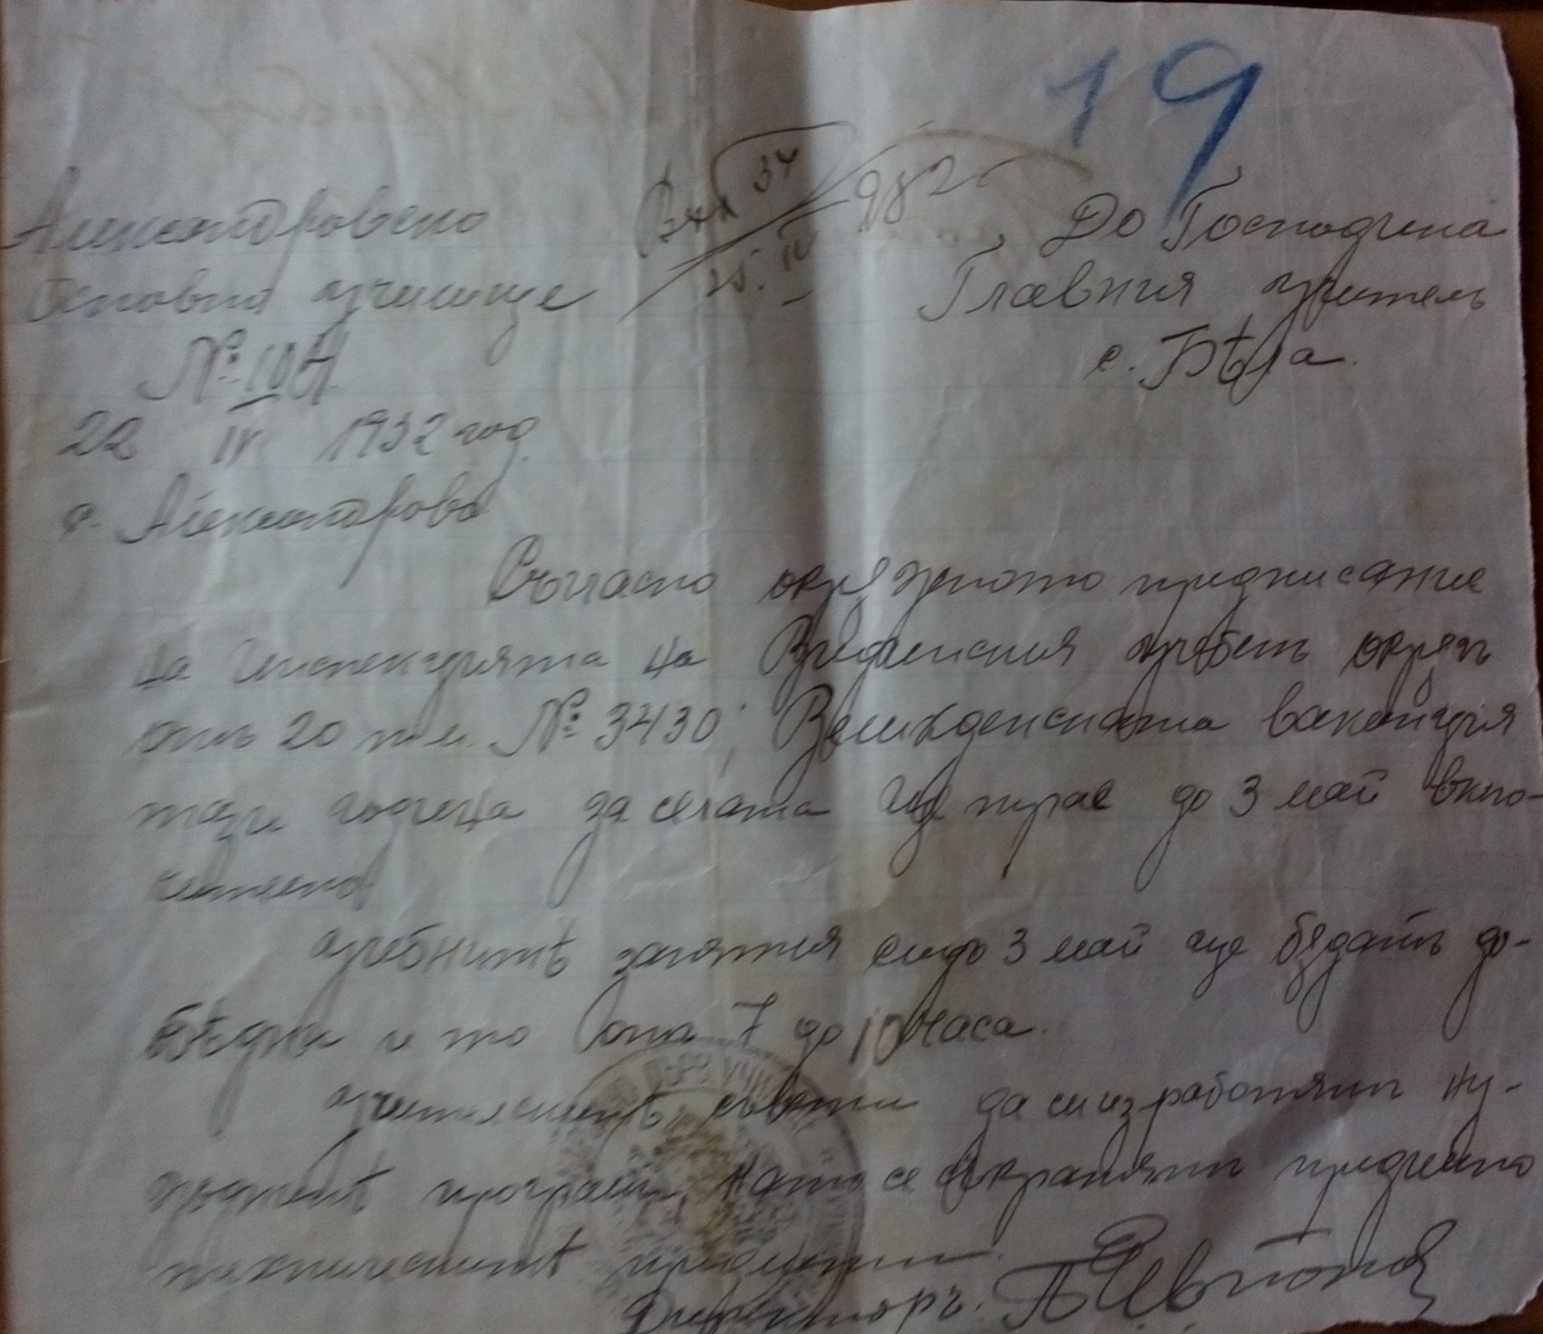 19
Вх. 34 / 25.IV 932
Александровско
Основно училище
№ 104
22 IV 1932 год.
с. Александрово
До Господина
Главния учитель
с. Бѣла.
Съгласно окрѫжното предписание
на Инспекцията на Врачанския учебенъ окрѫгъ
отъ 20 т.м. № 3430, Великденската ваканция
тази година за селата ще трае до 3 май вклю-
чително
Учебнитѣ занятия следъ 3 май ще бѫдатъ до-
обѣдни и то отъ 7 до 10 часа.
Учителскитѣ съвети да си изработятъ ну-
жднитѣ програми, като се съкратятъ предимно
техническитѣ предмети.
Директоръ: